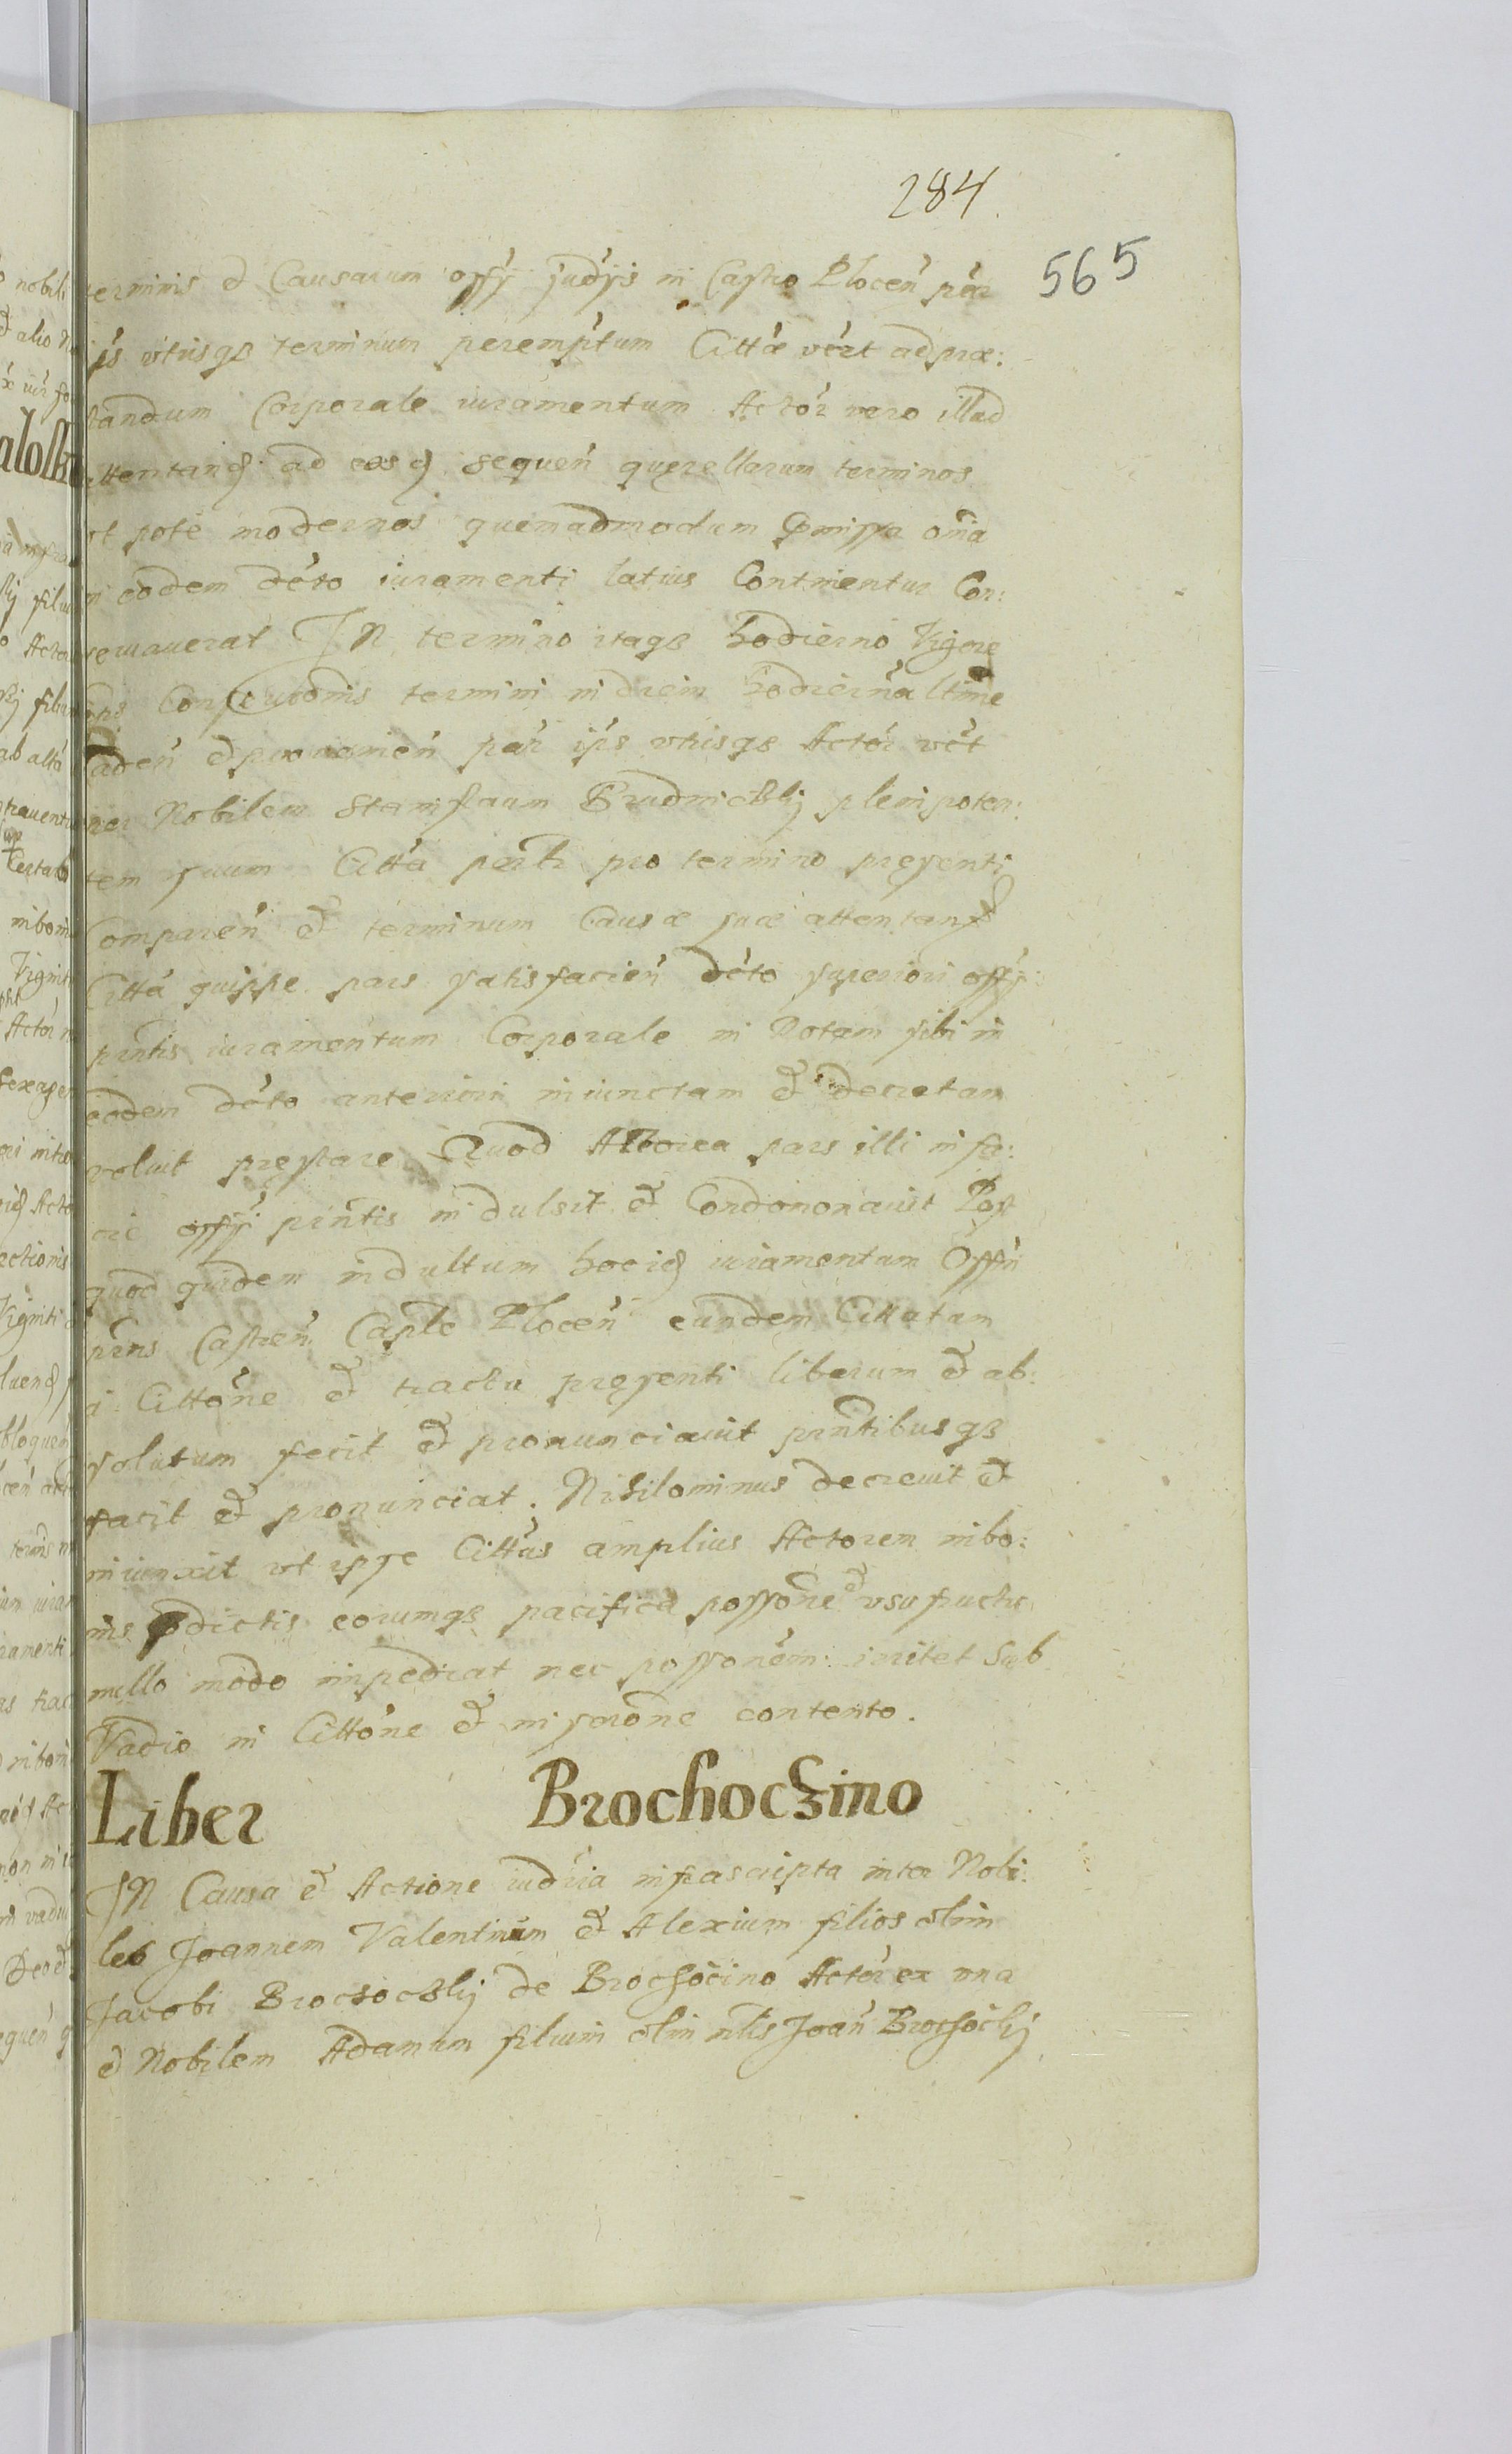 284.
565
terminis et Causarum offÿ judÿs in Castro Plocen̄ par
ips utrisqꝫ terminum peremptum Cittæ vért ad præ:
tandum Corporale iuramentum Actór vero illud
attentand ad easd sequen̄ querellarum terminos
ut poté modernos quemadmodum p̄missa om̄ia
in eodem décto iuramenti latius Continentur Con:
seruauerat IN termino itaqꝫ hodierno Vigore
Conseruãonis termini in diem hodiernã ltime
caden̄ et prouenien̄ par ips utrisqꝫ Actór vért
per Nobilem Stanislaum Brudnickij plenipoten:
tem suum Cittã perlr pro termino presenti
Comparen̄ et terminum Causæ suæ attentand
Cittá quippe pars satisfacien̄ décto superiori offÿ
pñtis iuramentum Corporale in Rotam sibi in
eodem décto anteriori iniunctam et decretam
voluit prestare Quod Actorea pars illi in fa:
cie offÿ pñtis indulsit et Condonauit Post
quod quidem indultum hocid iuramentum Offin̄
pñs Castren̄ Caplle Plocen̄ eundem Cittatum
á Cittóne et tractu presenti liberum et ab:
solutum fecit et pronunciauit pñtibusqꝫ
facit et pronunciat. Nihilominus decreuit et
iniunxit ut ipse Cittús amplius Actorem in bo:
nis p̄dictis eorumqꝫ pacifica possõne et usufructu
nullo modo impediat nec possonem: irritet sub
Vadio in Cittóne et inscrõne contento.
Liber Brochoczino
IN Causa et Actione iudria infrascripta inter Nobi:
les Joannem Valentinum et Alexium filios olim
Jacobi Brochockij de Brochocino Actór ex una
et Nobilem Adamum filium olim nlis Joan̄ Brochockij